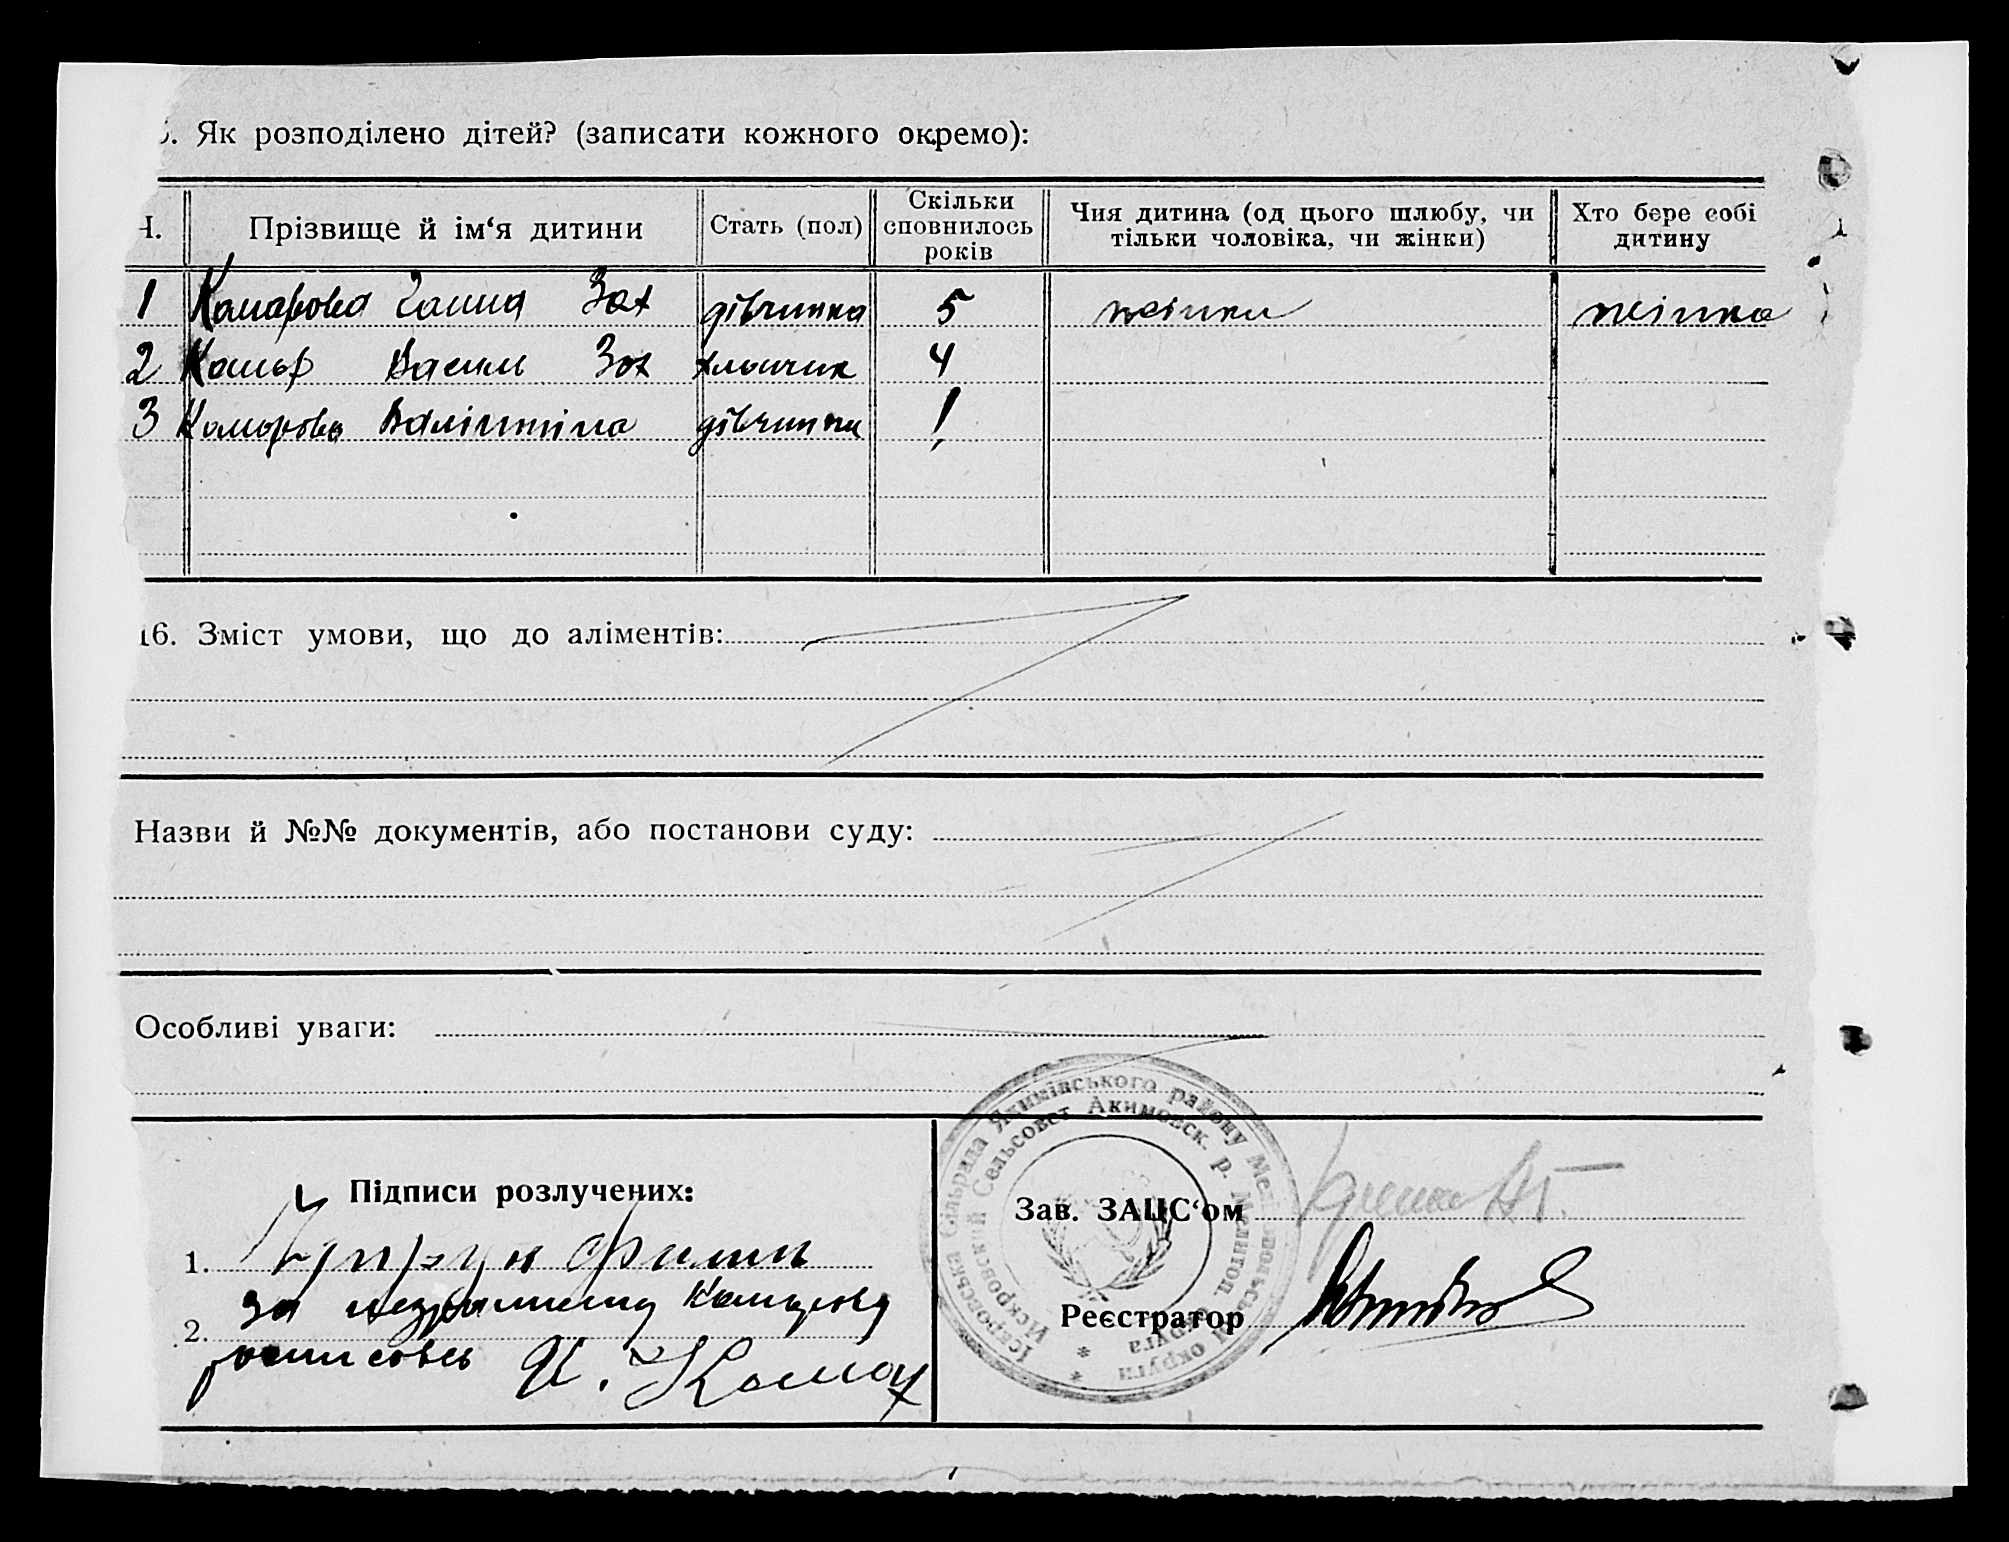 . Як розподілено дітей? (записати кожного окремо):
Ч. Прізвище й ім‘я дитини Стать (пол) Скільки сповнилось років Чия дитина (од цього шлюбу, чи тільки чоловіка, чи жінки) Хто бере собі дитину
1 Комарова Ганна Зах дівчинка 5 жінки жінка
2 Комар Василь Зах хлопчик 4
3 Комарова Валінтіна дівчинка 1
16. Зміст умови, що до аліментів:
Назви й №№ документів, або постанови суду:
Особливі уваги:
Підписи розлучених:
1.
за неграмотну Комарову
2.
росписовсь
Зав. ЗАЦС‘ом
Реєстратор
Іскровська Сільрада Якимівського району Мелітопольської округи
Искровский Сельсовет Акимовск. р. Мелитоп. округа